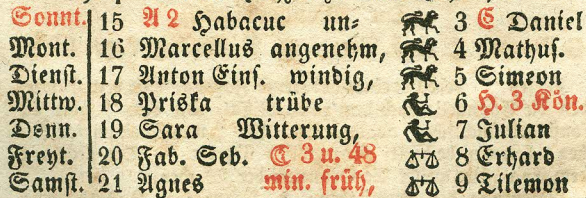 Sonnt. 15 A 2 Habacuc un⸗ 3 E Daniel
Mont. 16 Marcellus angenehm, 4 Mathuſ.
Dienſt. 17 Anton Einſ. windig, 5 Simeon
Mittw. 18 Priska trübe 6 H. 3 Kön.
Donn. 19 Sara Witterung, 7 Julian
Freyt. 20 Fab. Seb. ☾ 3 u. 48 8 Erhard
Samſt. 21 Agnes min. früh, 9 Tilemon